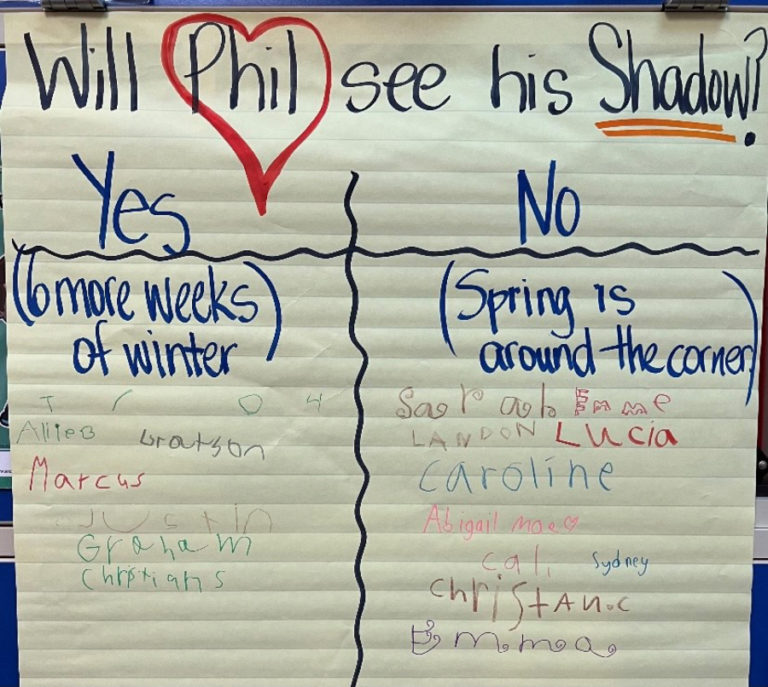 Will Phil see his Shadow?
Yes
No
(6 more weeks
of winter)
(Spring is
around the corner)
Allie B
Gratson
Marcus
Justin
Graham
Christian S
Sarah Emme
LANDON Lucia
Caroline
Abigail mae
cal
Sydney
Christan.c
Emma